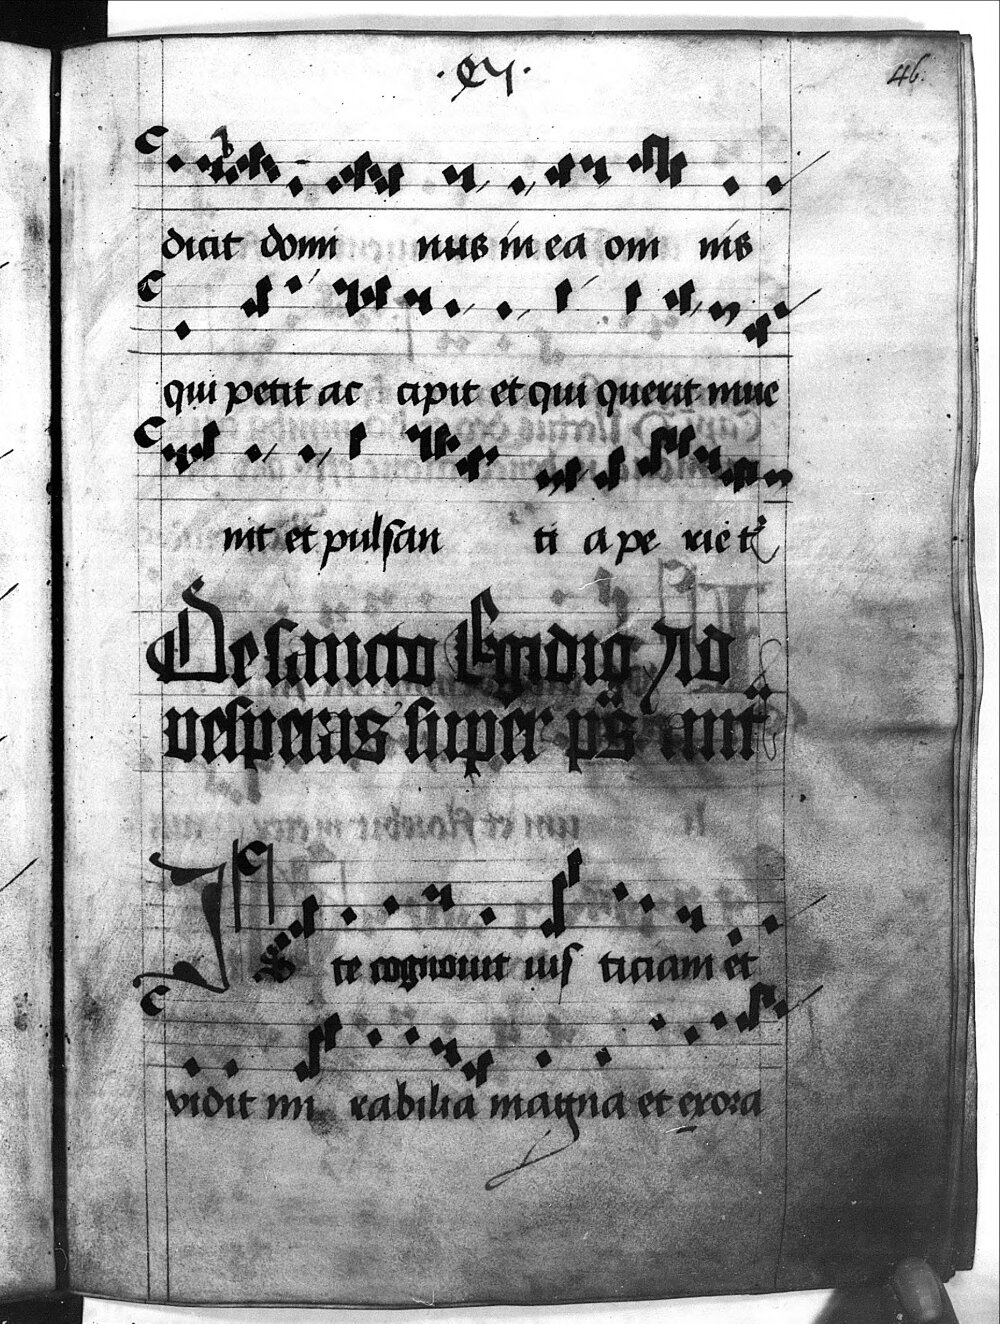 46.
dicit domi nus in ea om nis
qui petit ac cipit et qui querit inue
nit et pulsan ti a pe riet
De sancto Egidio Ad
vesperas super ps ant
Iste cognouit ius ticiam et
vidit mi rabilia magna et exora